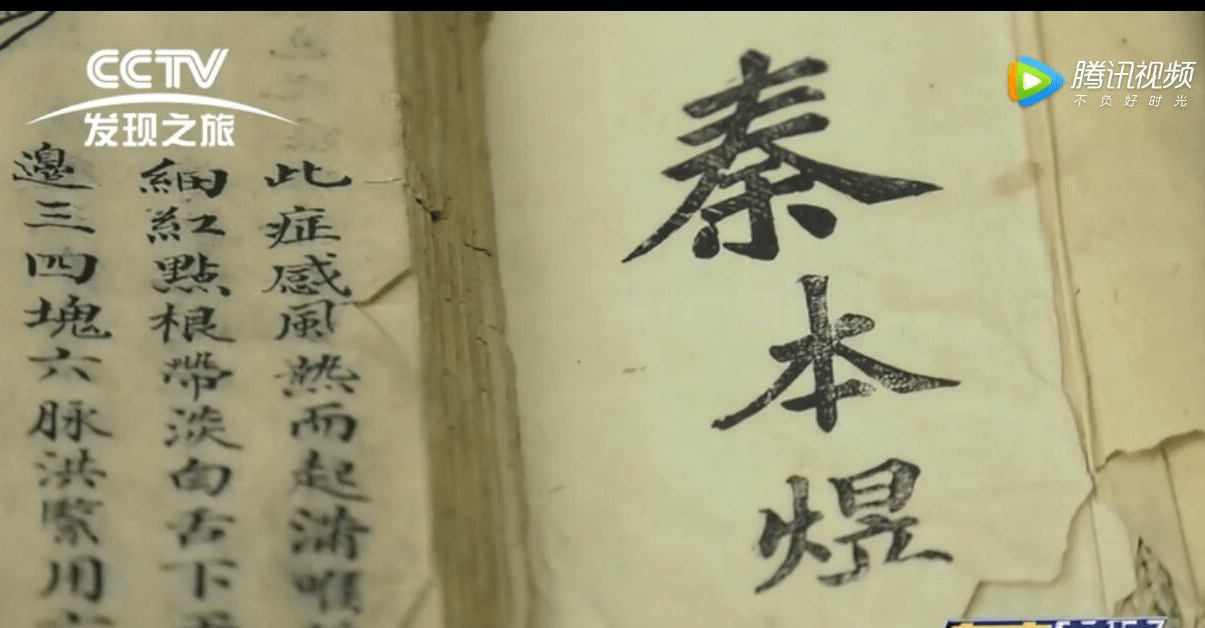 CCTV
发现之旅
腾讯视频
不负好时光
秦本煜
此症感風熱而起滿喉
細紅點根帶淡白舌下
邊三四塊六脉洪緊用